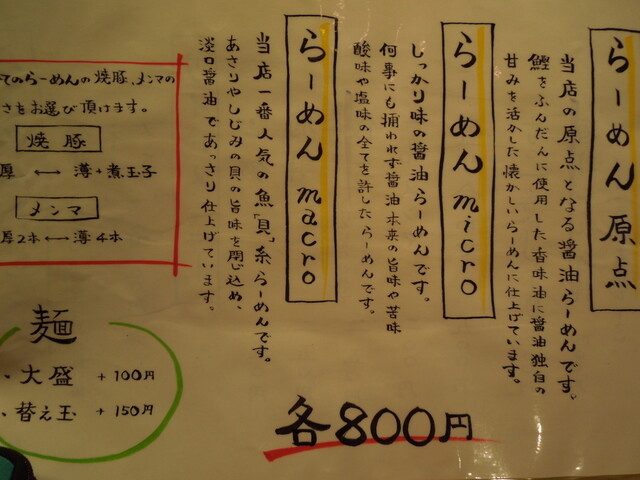 らーめん 原点
当店の原点となる醤油らーめんです。
鰹をふんだんに使用した香味油に醤油独自の
甘みを活かした懐かしいらーめんに仕上げています。
らーめん micro
しっかり味の醤油らーめんです。
何事にも捕われず醤油本来の旨味や苦味
酸味や塩味の全てを許したらーめんです。
らーめん macro
当店一番人気の魚「貝」系らーめんです。
あさりやしじみの貝の旨味を閉じ込め、
淡口醤油であっさり仕上げています。
各800円
てのらーめんの焼豚、メンマの
さをお選び頂けます。
焼豚
厚 ←→ 薄+煮玉子
メンマ
厚2本 ←→ 薄4本
麺
・大盛 +100円
・替え玉 +150円